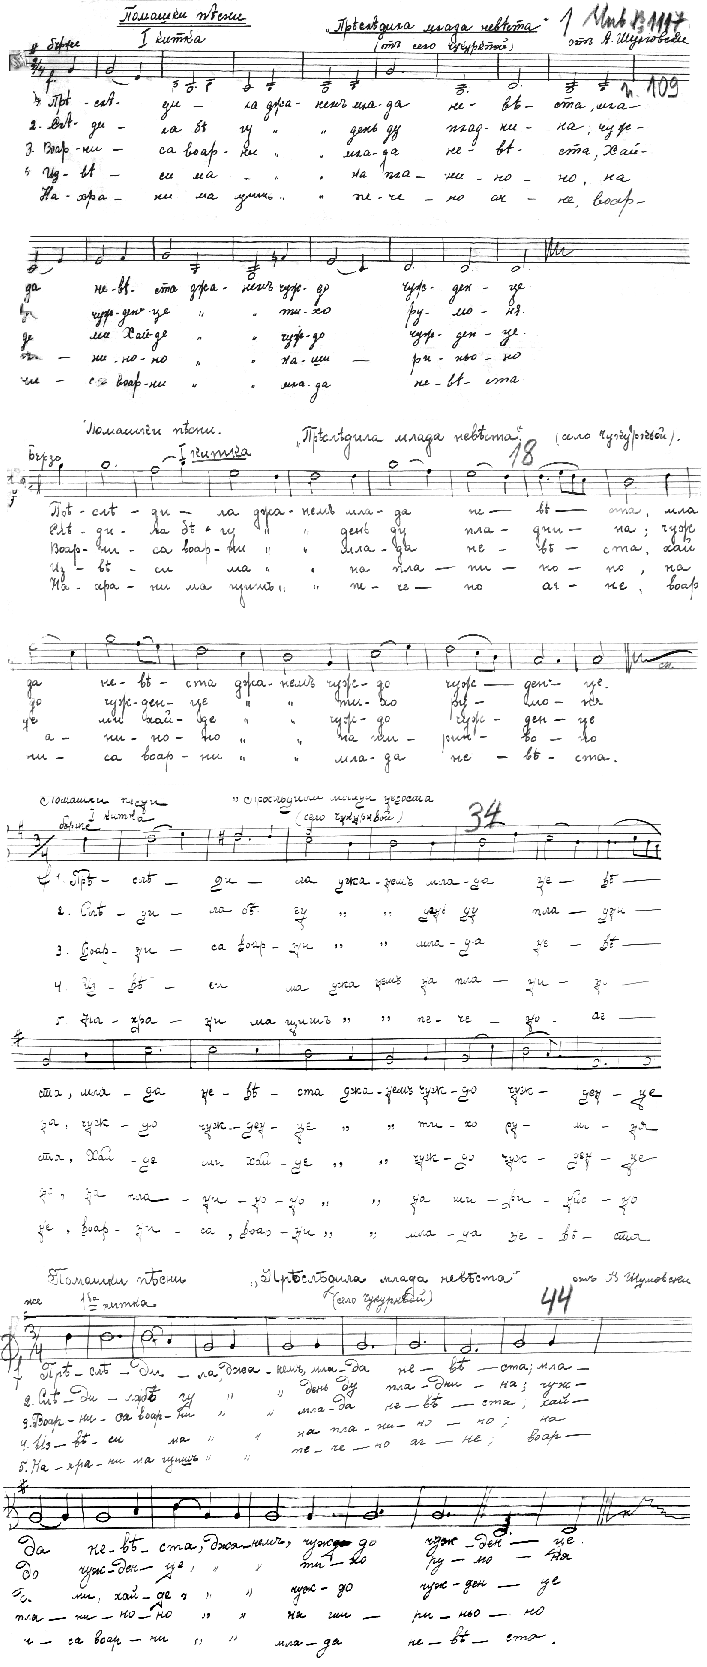 Помашки пѣсни
„Прѣслѣдила млада невѣста" 1 Инв. B. 1117
I китка (отъ село Чукуркьой) отъ А. Шумовски
п. 109
Прѣ - слѣ - ди - ла джа - немъ мла - да не - вѣ - ста, мла -
2. Слѣ - ди - ла бѣ гу " " день ду плад - ни - на, чуж -
3. Воар - ни - са воар - ни " " мла - да не - вѣ - ста, Хай -
Из - вѣ - си ма " " на пла - ни - но - но, на
На - хра - ни ма " " пе - че - но аг - не, воар -
да не - вѣ - ста джа - немъ чуж - до чуж - ден - це
чуж - ден - це " " ти - хо ру - мо - ня
де ми Хай - де " " чуж - до чуж - ден - це.
ни - но - но " " на - ши - ри - ньо - но
ни - са воар - ни " " мла - да не - вѣ - ста
Помашки пѣсни. „Прѣслѣдила млада невѣста". (село Чукуркьой).
Бързо I китка 18
Прѣ - слѣ - ди - ла джа - немъ мла - да не - вѣ - ста, мла
Слѣ - ди - ла бѣ гу " " день ду пла - дни - на; чуж
Воар - ни - са воар - ни " " мла - да не - вѣ - ста, хай
Из - вѣ - си ма " " на пла - ни - но - но, на
На - хра - ни ма " " пе - че - но аг - не, воар
да не - вѣ - ста джа - немъ чуж - до чуж - ден - це.
до чуж - ден - це " " ти - хо ру - мо - ня
де ми хай - де " " чуж - до чуж - ден - це
а - ни - но - но " " на ши - рин - во - но
ни - са воар - ни " " мла - да не - вѣ - ста.
Помашки песни
I китка (село Чукуркьой) 34
1. Прѣ - слѣ - ди - ла джа - немъ мла - да не - вѣ -
2. Слѣ - ди - ла бѣ гу " " день ду пла - дни -
3. Воар - ни - са воар - ни " " мла - да не - вѣ -
4. Из - вѣ - си ма джа немъ на пла - ни - но -
5. На - хра - ни ма " " пе - че - но аг -
ста, мла - да не - вѣ - ста джа - немъ чуж - до чуж - ден - це
на, чуж - до чуж - ден - це " " ти - хо ру - мо - ня
ста, Хай - де ми хай - де " " чуж - до чуж - ден - це
но, на пла - ни - но - но " " на ши - ри - ньо - но
не, воар - ни - са, воар - ни " " мла - да не - вѣ - ста
Помашки пѣсни „Прѣслѣдила млада невѣста" отъ В Шумовски
китка (село Чукуркьой) 44
1 Прѣ - слѣ - ди - ла, джа - немъ, мла - да не - вѣ - ста; мла -
2. Слѣ - ди - ла бѣ гу " " день ду пла - дни - на; чуж -
3. Воар - ни - са воар - ни " " мла - да не - вѣ - ста; хай -
4. Из - вѣ - си ма " " на пла - ни - но - но; на
5. На - хра - ни ма " " пе - че - но аг - не; воар -
да не - вѣ - ста, джа - немъ, чуж до чуж - ден - це.
до чуж - ден - це, " " ти - хо ру - мо - ня
ми, хай - де, " " чуж - до чуж - ден - це
пла - ни - но - но " " на ши - ри - ньо - но
ч - са воар - ни " " мла - да не - вѣ - ста.